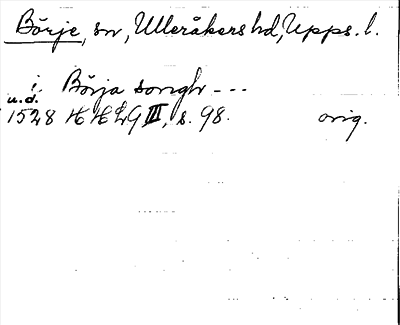 Börje, sn, Ulleråkers hd, Upps. l.
i Börja songh ---
u.d.
1528 HHLG III, s. 98. orig.